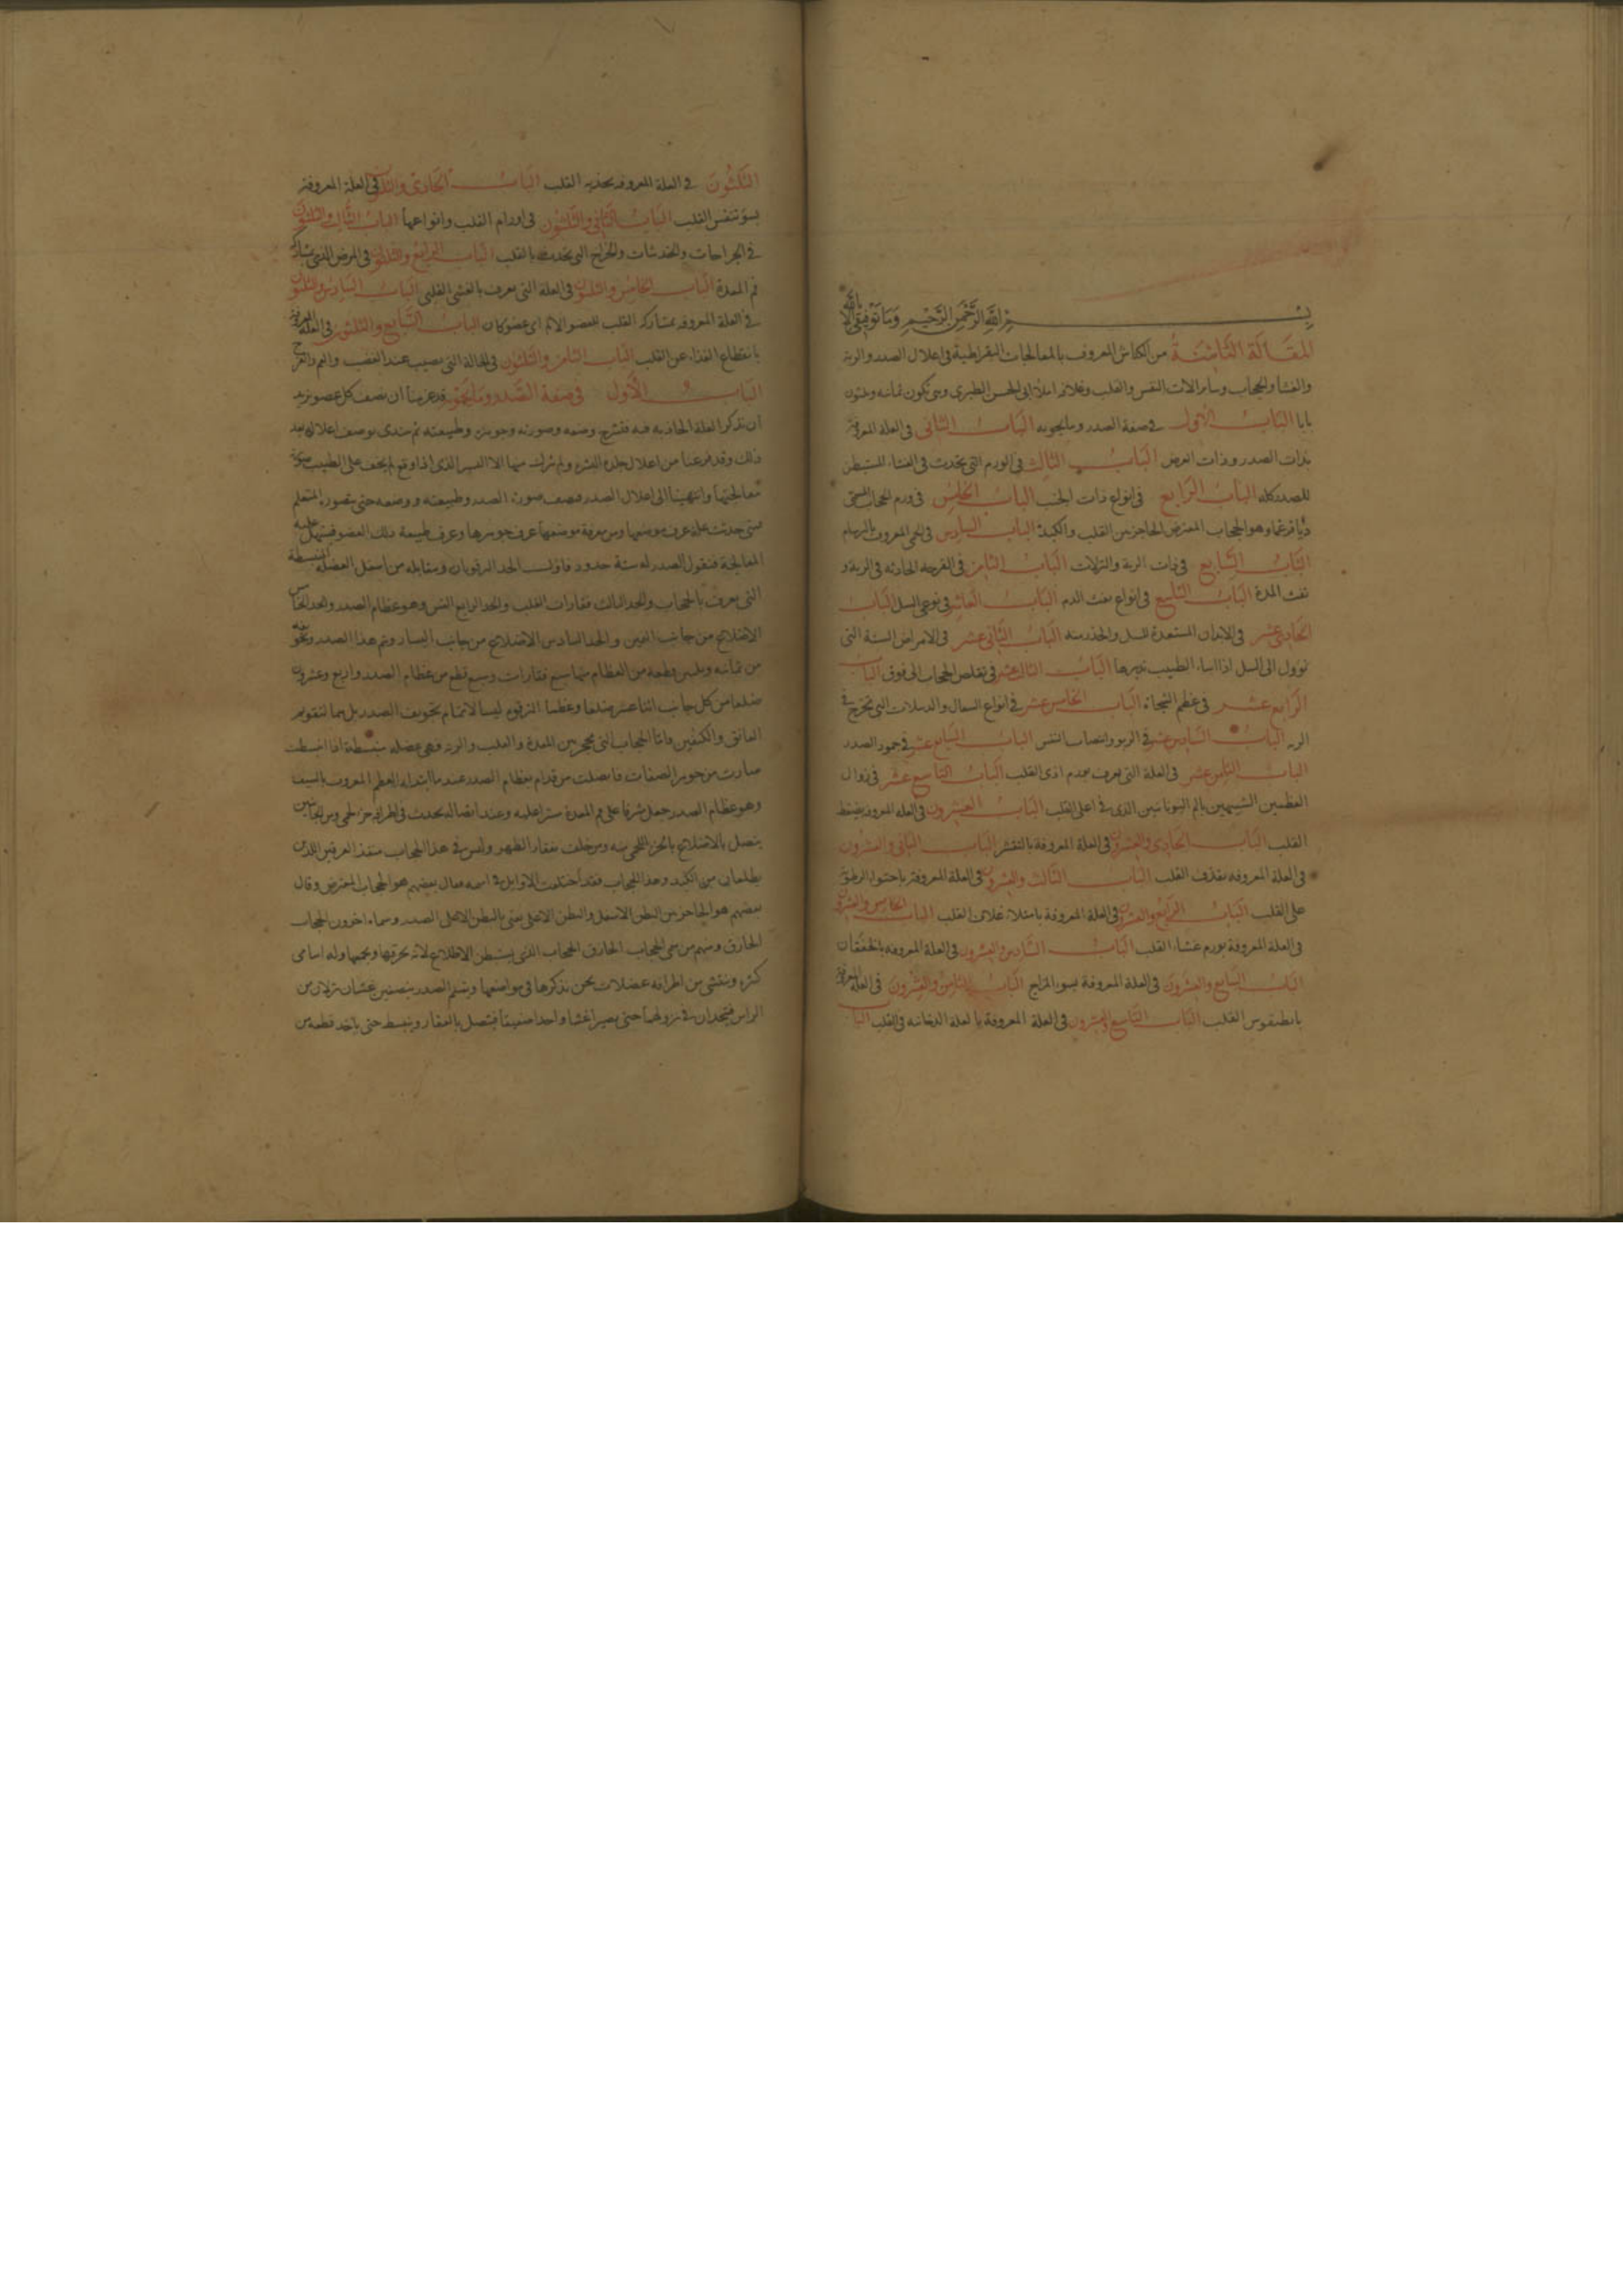 بسم الله الرحمن الرحيم وما توفيقي الا بالله
المقالة الثامنة من الكناش المعروف بالمعالجات البقراطية في اعلال الصدر والرية
والغشا والحجاب وساير الات النفس والقلب وغلافه املاء ابي الحسن الطبري وهي تكون ثمانيه وثلثون
بابا الباب الاول في صفة الصدر وما يحويه الباب الثاني في العلة المعروفة
بذات الصدر وذات العرض الباب الثالث في الورم التي يحدث في الغشاء المستبطن
للصدر كله الباب الرابع في انواع ذات الجنب الباب الخامس في ورم الحجاب المسمى
ديافرغما وهو الحجاب المعترض الحاجز بين القلب والكبد الباب السادس في المعروف بالبرسام
الباب السابع في ذات الرية والنزلات الباب الثامن في القرحة الحادثه في الرية و
نفث المدة الباب التاسع في انواع نفث الدم الباب العاشر في نوعي السل الباب
الحادي عشر في الابدان المستعدة للسل والحذر منه الباب الثاني عشر في الامراض الستة التي
توول الى السل اذا اساء الطبيب تدبيرها الباب الثالث عشر في تقلص الحجاب الى فوق الباب
الرابع عشر في عظم الباب الخامس عشر في انواع السعال والتي تخرج في
الرية الباب السادس عشر في الربو وانتصاب النفس الباب السابع عشر في جمود الصدر
الباب الثامن عشر في العلة التي تعرف بعدم اذى القلب الباب التاسع عشر في زوال
العظمين الشبيهين الذي في اعلى القلب الباب العشرون في العلة المعروفة بضغط
القلب الباب الحادي والعشرون في العلة المعروفة بالتقشر الباب الثاني والعشرون
في العلة المعروفه بقذف القلب الباب الثالث والعشرون في العلة المعروفة باحتواء الرطوبة
على القلب الباب الرابع والعشرون في العلة المعروفة بامتلاء غلاف القلب الباب الخامس والعشرون
في العلة المعروفة بورم غشاء القلب الباب السادس والعشرون في العلة المعروفه بالخفقان
الباب السابع والعشرون في العلة المعروفة بسوء المزاج الباب الثامن والعشرون في العلة المعروفة
القلب الباب التاسع والعشرون في العلة المعروفة بالعلة الدخانيه في القلب الباب
الثلثون في العلة المعروفه بحذيه القلب الباب الحادي والثلثون في العلة المعروفة
بسوء تنفس القلب الباب الثاني والثلثون في اورام القلب وانواعها الباب الثالث والثلثون
في الجراحات والخدشات والخراج التي تحدث بالقلب الباب الرابع والثلثون في المرض الذي يشارك
فم المعدة الباب الخامس والثلثون في العلة التي تعرف بالغشى القلبي الباب السادس والثلثون
في العلة المعروفه بمشاركة القلب للعضو الالم اي عضو كان الباب السابع والثلثون في العلة المعروفة
بانقطاع الغذاء عن القلب الباب الثامن والثلثون في الحالة التي تصيب عند الغضب والغم والفزع
الباب الاول في صفة الصدر وما يحويه قد عزمنا ان نصف كل عضو نريد
ان نذكر العلة الحادثه فيه فنشرح وضعه وصورته وجوهره وطبيعته ثم نبتدي بوصف اعلاله بعد
ذلك وقد فرغنا من اعلال جلدة ولم نترك منها الا اليسير الذي اذا وقع لم يخف على الطبيب
معالجتها وانتهينا الى اعلال الصدر فنصف صورة الصدر وطبيعته ووضعه حتى يتصوره المتعلم
متى حدثت علة عرف موضعها ومن معرفة موضعها عرف جوهرها وعرف طبيعة ذلك العضو فيسهل عليه
المعالجة فنقول الصدر له ستة حدود فاول الحد الترقوتان ومقابله من اسفل العضلة المنبسطة
التي تعرف بالحجاب والحد الثالث فقارات القلب والحد الرابع القس وهو عظام الصدر والحد الخامس
الاضلاع من جانب اليمين والحد السادس الاضلاع من جانب اليسار وتم هذا الصدر
من ثمانيه وثلثين قطعة من العظام منها سبع فقارات وسبع قطع من عظام الصدر واربع وعشرون
ضلعا من كل جانب اثنا عشر ضلعا وعظما الترقوه ليسا لاتمام تجويف الصدر بل هما لتقويم
العاتق والكتفين واما الحجاب التي يحجز بين المعدة والقلب والرية فهي عضله منبسطة اذا انبسطت
صارت من جوهر الصفات فاتصلت من قدام بعظام الصدر عند ما ابتداء العظم المعروف بالسيف
وهو عظام الصدر جعل مشرفا على فم المعدة سترا عليه وعند اتصاله يحدث في اطرافه جزء لحمي ومن الجانبين
يتصل بالاضلاع بالجزء اللحمي منه ومن خلف بفقار الظهر وليس في هذا الحجاب منفذ العرقين اللذين
يطلعان من الكبد وهذا الحجاب فقد اختلفت الاوايل في اسمه فقال بعضهم هو الحجاب المعترض وقال
بعضهم هو الحاجز بين البطن الاسفل والبطن الاعلى يعني بالبطن الاعلى الصدر وسماه اخرون الحجاب
الخارق ومنهم من سمى الحجاب الخارق الحجاب الذي يستبطن الاضلاع لانه يخرقها ويجمعها وله اسامي
كثيرة وتنشى من اطرافه عضلات نحن نذكرها في مواضعها وينقسم الصدر بنصفين بغشاءان ينزلان من
الراس فيتحدان في نزولهما حتى يصير اغشا واحدا صفيقا فيتصل بالفقار وينبسط حتى ياخذ قطعة من